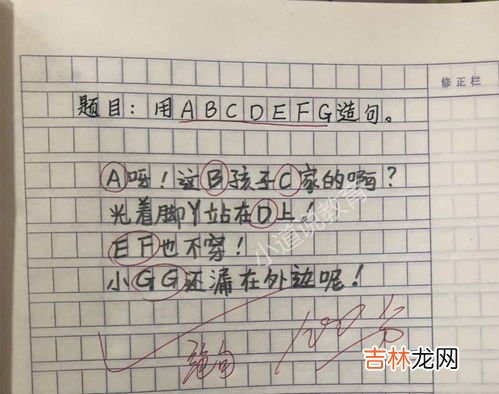 修正栏
题目：用ABCDEFG造句。
A呀！这B孩子C家的啊？
光着脚丫站在D上！
EF也不穿！
小GG还漏在外边呢！
绝句 100分
小道说教育
吉林龙网